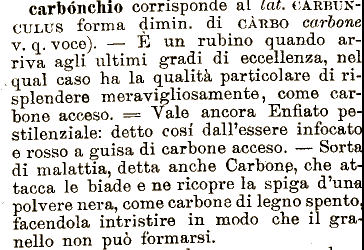 carbónchio corrisponde al lat. CARBUN-
CULUS forma dimin. di CÀRBO carbone
v. q. voce). — È un rubino quando ar-
riva agli ultimi gradi di eccellenza, nel
qual caso ha la qualità particolare di ri-
splendere meravigliosamente, come car-
bone acceso. = Vale ancora Enfiato pe-
stilenziale: detto cosí dall'essere infocato
e rosso a guisa di carbone acceso. — Sorta
di malattia, detta anche Carbone, che at-
tacca le biade e ne ricopre la spiga d'una
polvere nera, come carbone di legno spento,
facendola intristire in modo che il gra-
nello non può formarsi.